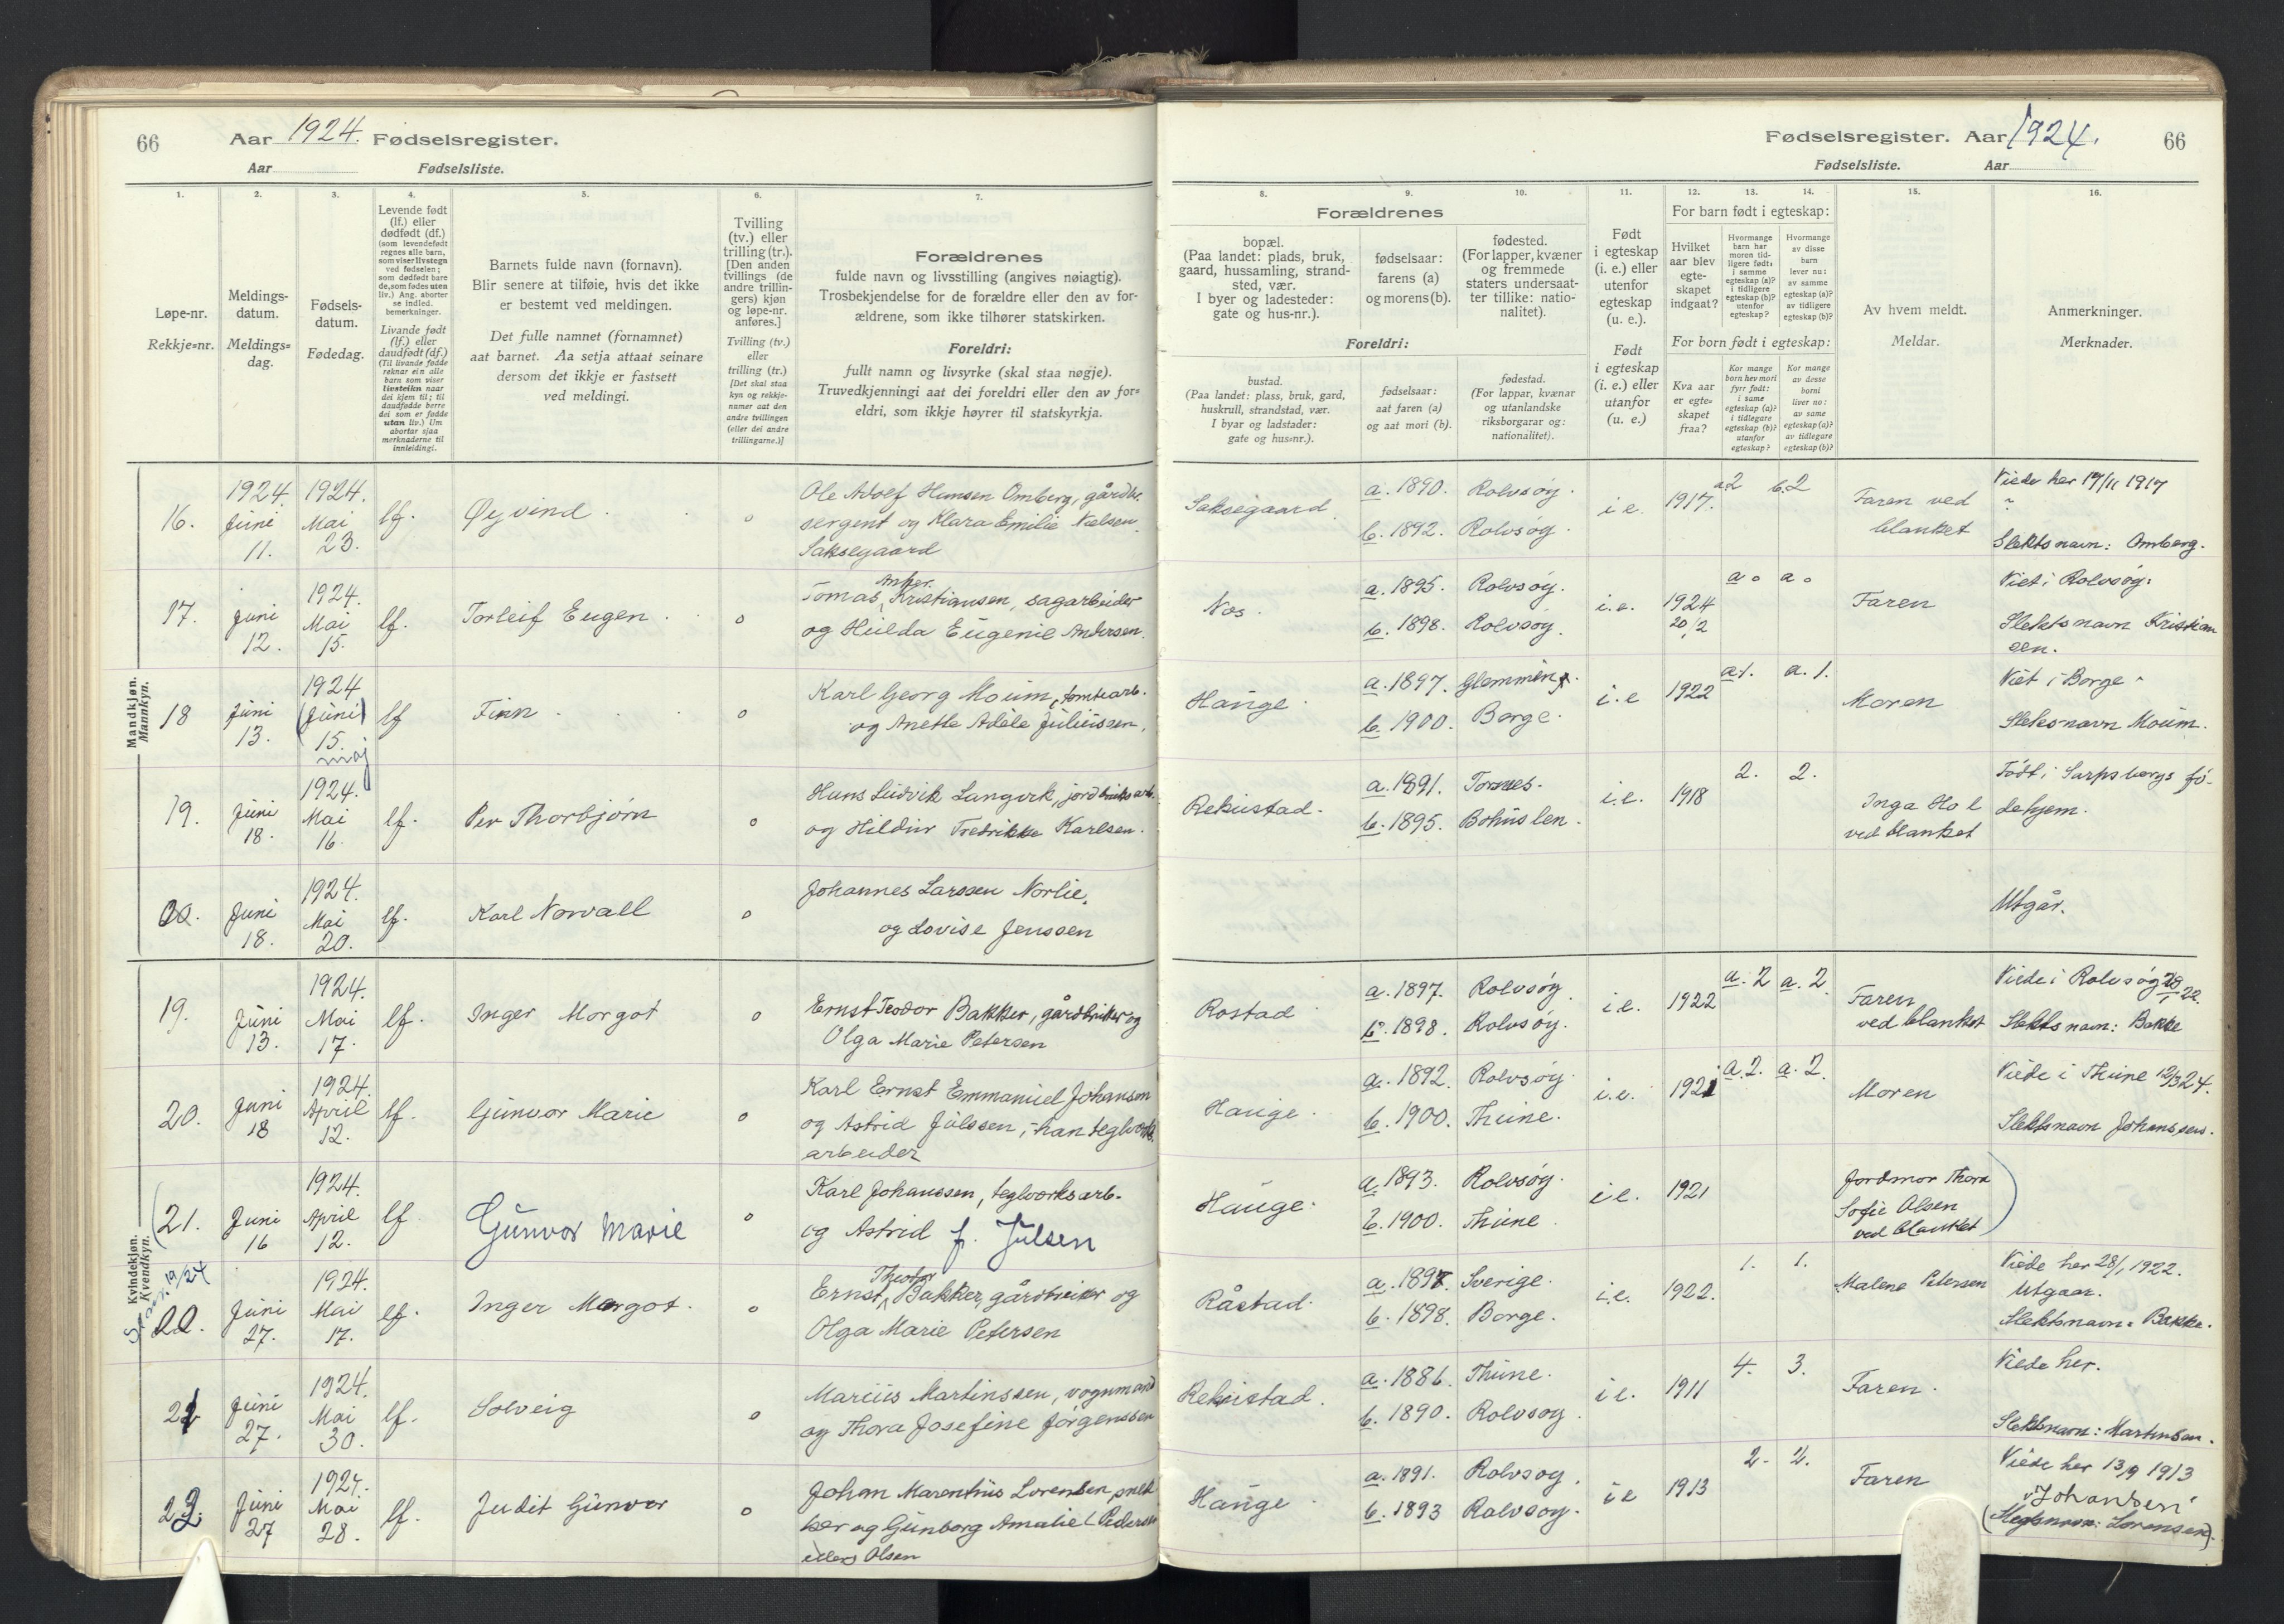 66
Aar 1924. Fødselsregister.
Aar Fødselsliste.
1.
Løpe-nr.
Rekkje=nr.
2.
Meldings-
datum.
Meldings=
dag.
3.
Fødsels-
datum.
Fødedag.
4.
Levende født
(lf.) eller
dødfødt (df.)
(som levendefødt
regnes alle barn,
som viser livstegn
ved fødselen;
som dødfødt bare
de, som fødes uten
liv.) Ang. aborter
se indled.
bemerkninger.
Livande født
(lf.) eller
daudfødt (df.)
(Til livande fødde
reknar ein alle
barn som viser
livsteikn naar
dei kjem til; til
daudfødde berre
dei som er fødde
utan liv.) Um
abortar sjaa
merknaderne til
innleiding.
5.
Barnets fulde navn (fornavn).
Blir senere at tilføie, hvis det ikke
er bestemt ved meldingen.
Det fulle namnet (fornamnet)
aat barnet. Aa setja attaat seinare
dersom det ikkje er fastsett
ved meldingi.
6.
Tvilling
(tv.) eller
trilling (tr.).
[Den anden
tvillings (de
andre trillin-
gers) kjøn
og løpe-nr.
anføres.]
Tvilling (tv.)
eller
trilling (tr.)
[Det skal staa
kyn og rekkje-
numer aat den
andre tvillingen
(eller dei andre
trillingarne.)]
7.
Forældrenes
fulde navn og livsstilling (angives nøiagtig).
Trosbekjendelse for de forældre eller den av for-
ældrene, som ikke tilhører statskirken.
Foreldri:
fullt namn og livsyrke (skal staa nøgje).
Truvedkjenningi aat dei foreldri eller den av for=
eldri, som ikkje høyrer til statskyrkja.
Fødselsregister. Aar 1924.
66
Fødselsliste. Aar
8.
Forældrenes
bopæl.
(Paa landet: plads, bruk,
gaard, hussamling, strand-
sted, vær.
I byer og ladesteder:
gate og hus-nr.).
Foreldri:
bustad.
(Paa landet: plass, bruk, gard,
huskrull, strandstad, vær.
I byar og ladstader:
gate og hus=nr.).
9.
fødselsaar:
farens (a)
og morens (b).
fødselsaar:
aat faren (a)
og aat mori (b).
10.
fødested.
(For lapper, kvæner
og fremmede
staters undersaat-
ter tillike: natio-
nalitet).
fødestad.
(For lappar, kvænar
og utanlandske
riksborgarar og:
nationalitet).
11.
Født
i egteskap
(i. e.) eller
utenfor
egteskap
(u. e.).
Født
i egteskap
(i. e.) eller
utanfor
(u. e.)
12. 13. 14.
For barn født i egteskap:
Hvilket
aar blev
egte-
skapet
indgaat?
Hvormange
barn har
moren tid-
ligere født:
i samme
egteskap (a)?
i tidligere
egteskap (b)?
utenfor
egteskap?
Hvormange
av disse
barn
lever nu:
av samme
egteskap (a)?
av tidligere
egteskap (b)?
For born født i egteskap:
Kva aar
er egte=
skapet
fraa?
Kor mange
born hev mori
fyrr født:
i same
egteskap (a)?
i tidlegare
egteskap (b)?
utanfor
egteskap?
Kor mange
av desse
borni
liver no:
av same
egteskap (a)?
av tidlegare
egteskap (b)?
15.
Av hvem meldt.
Meldar.
16.
Anmerkninger.
Merknader.
Mandkjøn.
Mannkyn.
16. 1924 Juni 11. 1924. Mai 23. lf. Øyvind o
Ole Adolf Hansen Omberg, gårdbr.
sergent og Klara Emilie Nielsen
Saksegaard
Saksegaard. a. 1890. Rolvsøy. b. 1892. Rolvsøy. i e. 1917. a2 b.2 Faren ved blanket
Viede her 17/11 1917
Slektsnavn: Omberg.
17. Juni 12. 1924. Mai 15. lf. Torleif Eugen o
Anker.
Tomas Kristiansen, sagarbeider
og Hulda Eugenie Andersen.
Nes. a. 1895. Rolvsøy. b. 1898. Rolvsøy. i.e. 1924 20/2 a o a o Faren
Viet i Rolvsøy.
Slektsnavn Kristian
sen.
18 Juni 13. 1924 (Juni) 15. maj lf Finn o
Karl Georg Moum, tomtearb.
og Anette Adele Juliussen.
Hauge. a. 1897. Glemminge. b. 1900. Borge. i.e 1922 a1. a. 1. Moren
Viet i Borge
Slektsnavn Moum.
19. Juni 18. 1924. Mai 16. lf. Per Thorbjørn o
Hans Ludvik Langvik, jordbruksarb.
og Hildur Fredrikke Karlsen.
Rekustad. a. 1891. Tomnes. b. 1895. Bohuslen. i.e. 1918 2. 2. Inga Hol ved blanket
Født i Sarpsborgs fø-
dehjem.
Juni 18. 1924. Mai 20. lf. Karl Norvall o
Johannes Larssen Norlie,
og Lovise Jenssen
Utgår.
Kvindekjøn.
Kvendkyn.
19. Juni 13. 1924. Mai 17. lf. Inger Margot o
Ernst Teodor Bakker, gårdbruker og
Olga Marie Petersen
Rostad a. 1897. Rolvsøy b. 1898. Rolvsøy. i.e. 1922 a. 2 a. 2 Faren ved blanket
Viede i Rolvsøy 28/1 22.
Slektsnavn: Bakke
20. Juni 18 1924. April 12. lf. Gunvor Marie o
Karl Ernst Emmanuel Johansen
og Astrid Julssen, han teglverks
arbeider
Hauge. a. 1892. Rolvsøy. b. 1900. Thune. i.e. 1921 a. 2. a. 2. Moren
Viede i Thune 12/3 24.
Slektsnavn Johanssen.
(21. Juni 16 1924. April 12. lf Gunvor Marie o
Karl Johanssen, teglverksarb.
og Astrid f. Julsen
Hauge. a. 1893. Rolvsøy. b. 1900. Thune. i e. 1921 Jordmor Thora Sofie Olsen ved blanket)
19/24
22. Juni 27. 1924. Mai 17. lf. Inger Margot. o
Theodor
Ernst Bakker, gårdbruker og
Olga Marie Petersen
Råstad. a. 1897 Sverige. b. 1898. Borge. i.e. 1922. 1. 1. Malene Petersen
Viede her 28/1 1922.
Utgaar.
Slektsnavn: Bakke.
21 Juni 27. 1924. Mai 30. lf. Solveig o
Marius Martinssen, vognmand
og Thora Josefine Jørgenssen
Rekustad. a. 1886. Thune. b. 1890. Rolvsøy. i e. 1911 4. 3. Faren.
Viede her.
Slektsnavn: Martinsen.
22. Juni 27 1924. Mai 28. lf. Judit Gunvor o
Johan Marentius Lorentsen, snek
ker og Gunborg Amalie (Pedersen
ellers Olsen
Hauge. a. 1891. Rolvsøy. b. 1893 Rolvsøy. i e 1913 2. 2. Faren
Viede her 13/9 1913
"Johansen"
(Slegtsnavn: Lorensen).